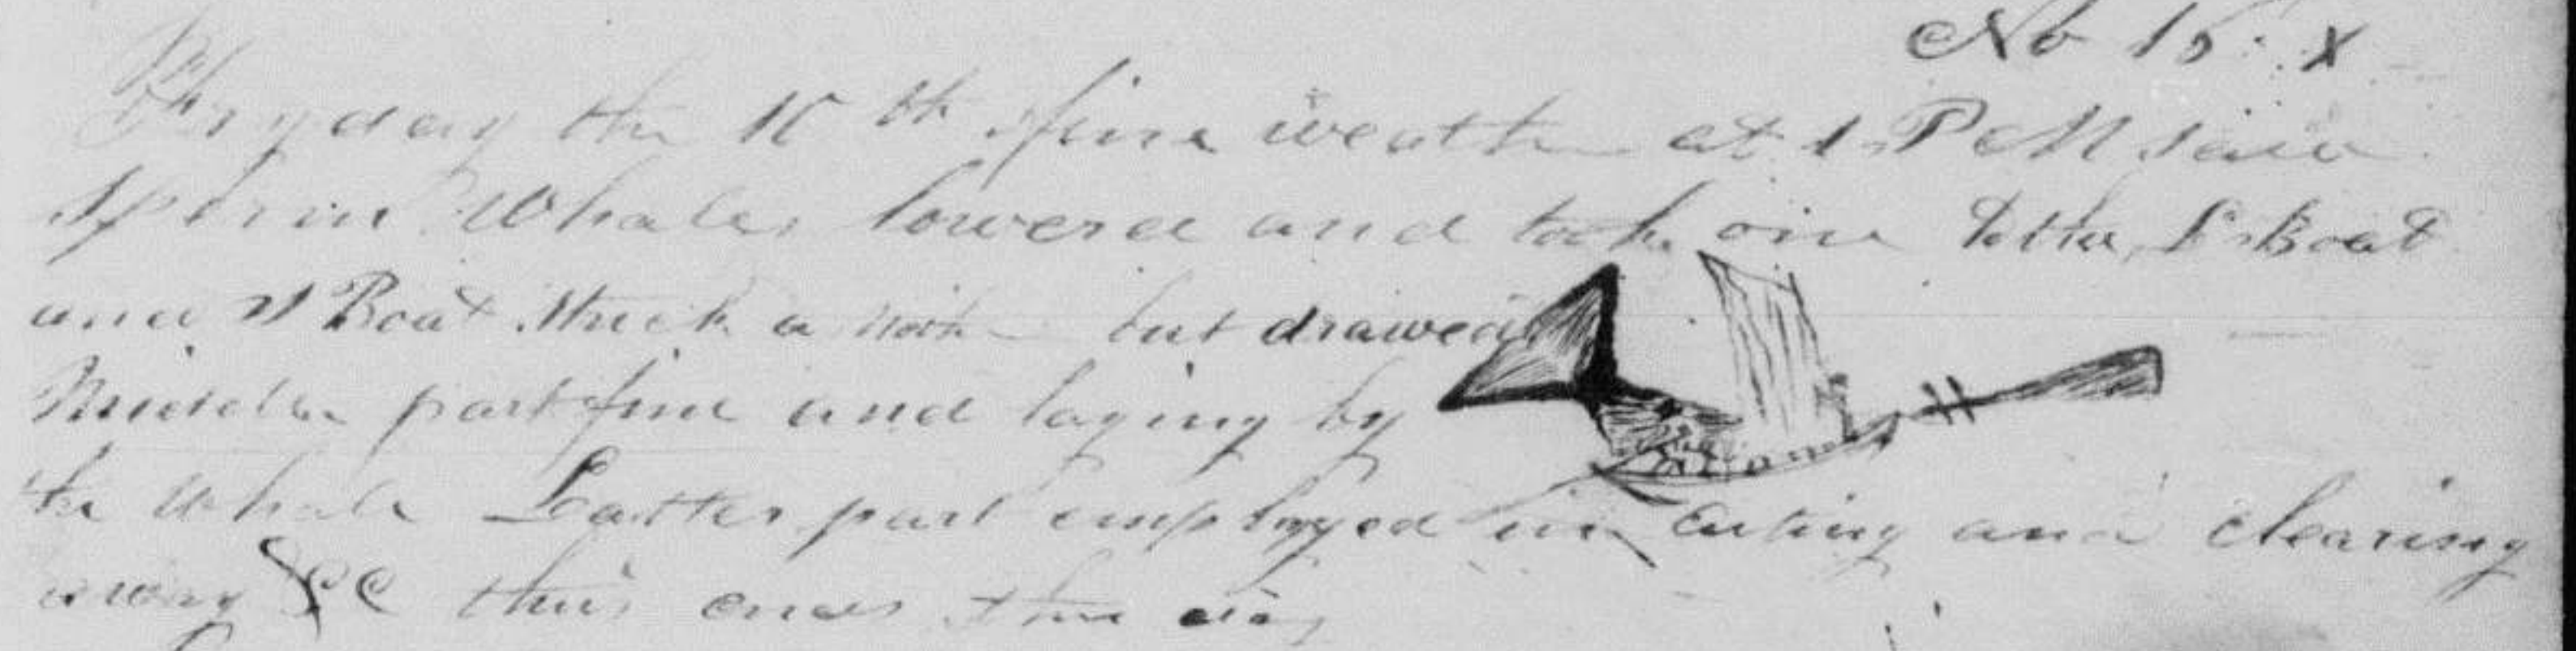 No 15 X
Fryday the 10th fine weather at 1 PM saw
Sperm Whales lowered and took one L Boat
and W Boat Struck a but drawed
Middle part fine and laying by
the Whale Latter part employed in Cuting and clearing
away &C thus ends this day